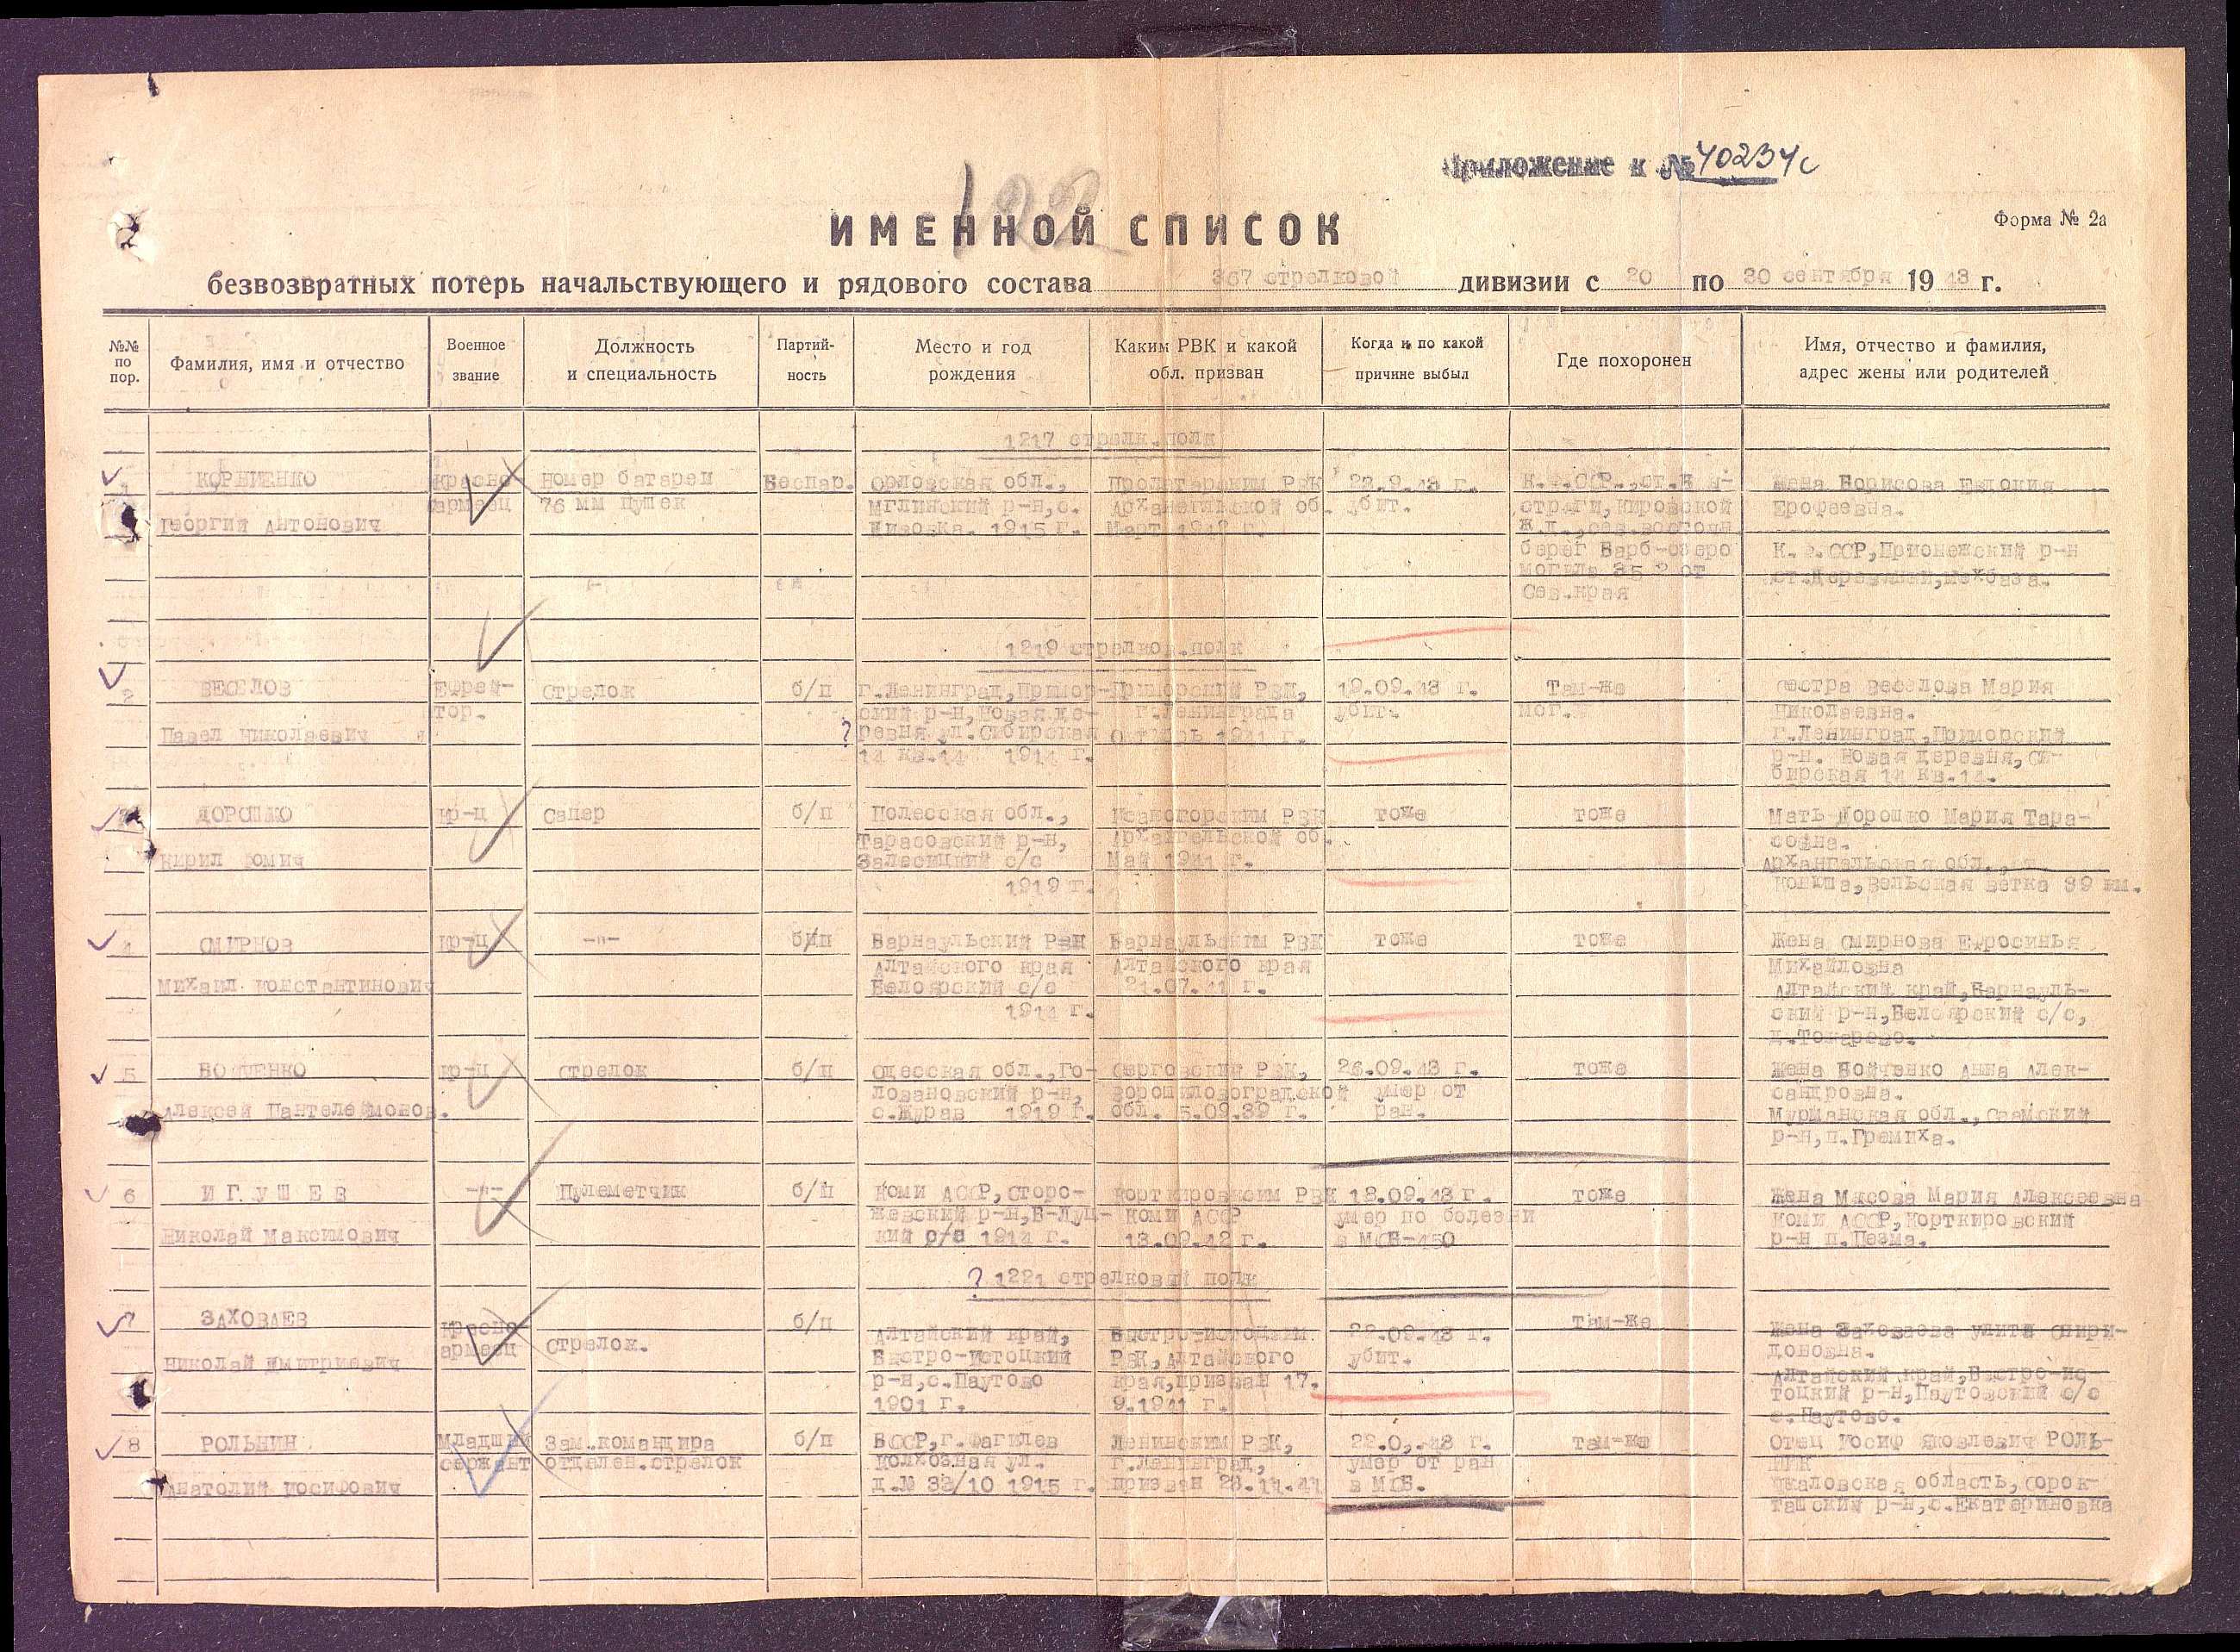 Приложение к № 40234с
122
ИМЕННОЙ СПИСОК
Форма № 2а
безвозвратных потерь начальствующего и рядового состава 367 стрелковой дивизии с 20 по 30 сентября 1943 г.
№№ по пор.
Фамилия, имя и отчество
Военное звание
Должность и специальность
Партий-ность
Место и год рождения
Каким РВК и какой обл. призван
Когда и по какой причине выбыл
Где похоронен
Имя, отчество и фамилия, адрес жены или родителей
1217 стрелк.полк
1
КОРНИЕНКО
Георгий Антонович
Красно
армеец
Номер батареи
76 мм пушек
Беспар.
Орловская обл.,
Мглинский р-н,с.
Нивовка. 1915 г.
Пролетарским РВК
Архангельской об.
Март 1942 г.
22.9.43 г.
убит.
Кировской
ж.д.,
берег Варб-озеро
могила
Сев.края
Жена Борисова Евдокия
Ерофеевна.
К.Ф.ССР,Прионежский р-н
мехбаза.
1219 стрелков.полк
2
ВЕСЕЛОВ
Павел Николаевич
Ефрей-
тор.
Стрелок
б/п
г.Ленинград,Примор-
ский р-н,Новая де-
? ревня ул.Сибирская
14 кв.14 1914 г.
Приморский РВК,
г.Ленинграда
Октябрь 1941 г.
19.09.43 г.
убит.
Там-же
мог.
Сестра Веселова Мария
Николаевна.
г.Ленинград,Приморский
р-н. Новая деревня,Си-
бирская 14 кв.14.
3
ДОРОШКО
Кирил Фомич
кр-ц
Сапер
б/п
Полесская обл.,
Тарасовский р-н,
Залесицкий с/с
1919 г.
РВК
Архангельской об.
Май 1941 г.
тоже
тоже
Мать Дорошко Мария Тара-
совна.
Архангельская обл.,ст.
Коноша,Вельская ветка 39 км.
4
СМИРНОВ
Михаил Константинович
кр-ц
-"-
б/п
Барнаульский РВК
Алтайского края
Белоярский с/с
1914 г.
Барнаульским РВК
Алтайского края
21.07.41 г.
тоже
тоже
Жена Смирнова Ефросинья
Михайловна
Алтайский край,Барнауль-
ский р-н,Белоярский с/с,
д.Токарево.
5
БОЙЧЕНКО
Алексей Пантелеймонов.
кр-ц
стрелок
б/п
Одесская обл.,Го-
ловановский р-н,
с.Журав 1919 г.
Серговский РВК,
Ворошиловоградской
обл. 5.09.39 г.
26.09.43 г.
умер от
ран.
тоже
Жена Бойченко Анна Алек-
сандровна.
Мурманская обл.,Саамский
р-н,п.Гремиха.
6
ИГУШЕВ
Николай Максимович
-"-
Пулеметчик
б/п
Коми АССР,Сторо-
жевский р-н,Б-Луц-
кий с/с 1914 г.
Корткировским РВК
Коми АССР
13.09.42 г.
18.09.43 г.
умер по болезни
в МСБ-450
тоже
Жена Мясова Мария Алексеевна
Коми АССР,Корткировский
р-н п.Пезма.
? 1221 стрелковый полк
7
ЗАХОВАЕВ
Николай Дмитриевич
Красно-
армеец
Стрелок.
б/п
Алтайский край,
Быстро-Истоцкий
р-н,с.Паутово
1901 г.
Быстро-Истоцким
РВК,Алтайского
края,призван 17.
9.1941 г.
22.09.43 г.
убит.
Там-же
Жена Заховаева Улита Спири-
доновна.
Алтайский край,Быстро-Ис
тоцкий р-н,Паутовский с/с
с.Паутово.
8
РОЛЬНИН
Анатолий Иосифович
Младший
сержант
Зам.командира
отделен.стрелок
б/п
БССР,г.
Колхозная ул.
д.№ 33/10 1915 г.
Ленинским РВК,
г.Ленинград,
призван 23.11.41
умер от ран
в МСБ.
там-же
Отец Иосиф Яковлевич РОЛЬ-
НИН
Чкаловская область,Сорок-
ташский р-н,с.Екатериновка